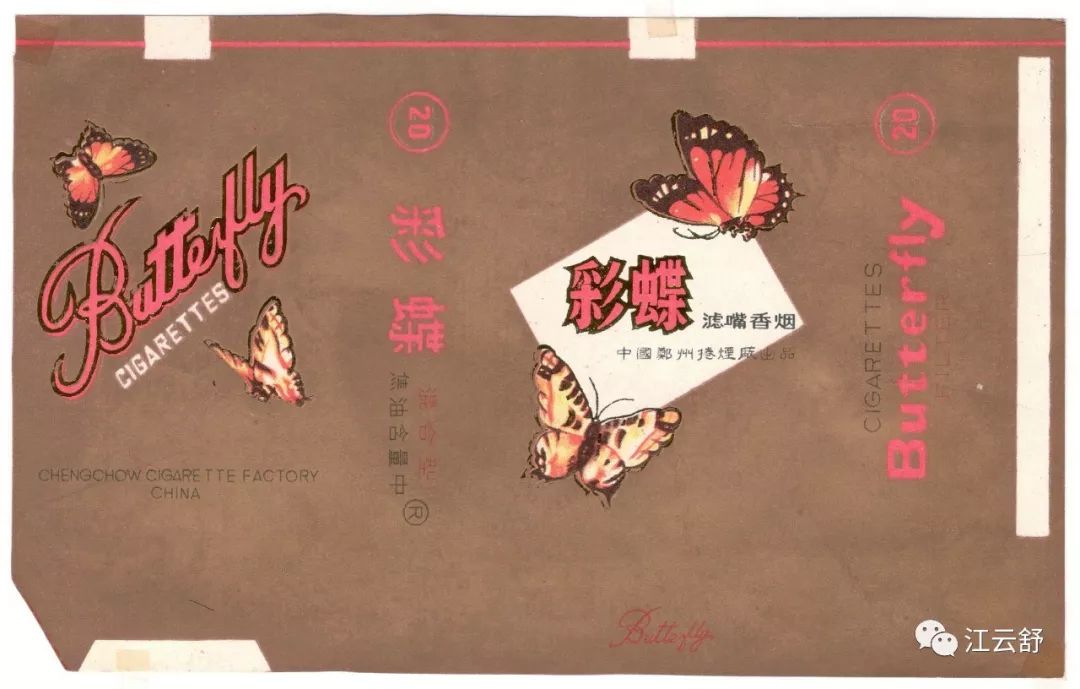 Butterfly
CIGARETTES
CHENGCHOW CIGARETTE FACTORY
CHINA
20
彩蝶
混合型
焦油含量中
R
彩蝶
滤嘴香烟
中國鄭州捲煙廠出品
Butterfly
20
Butterfly
CIGARETTES
FILTER
江云舒